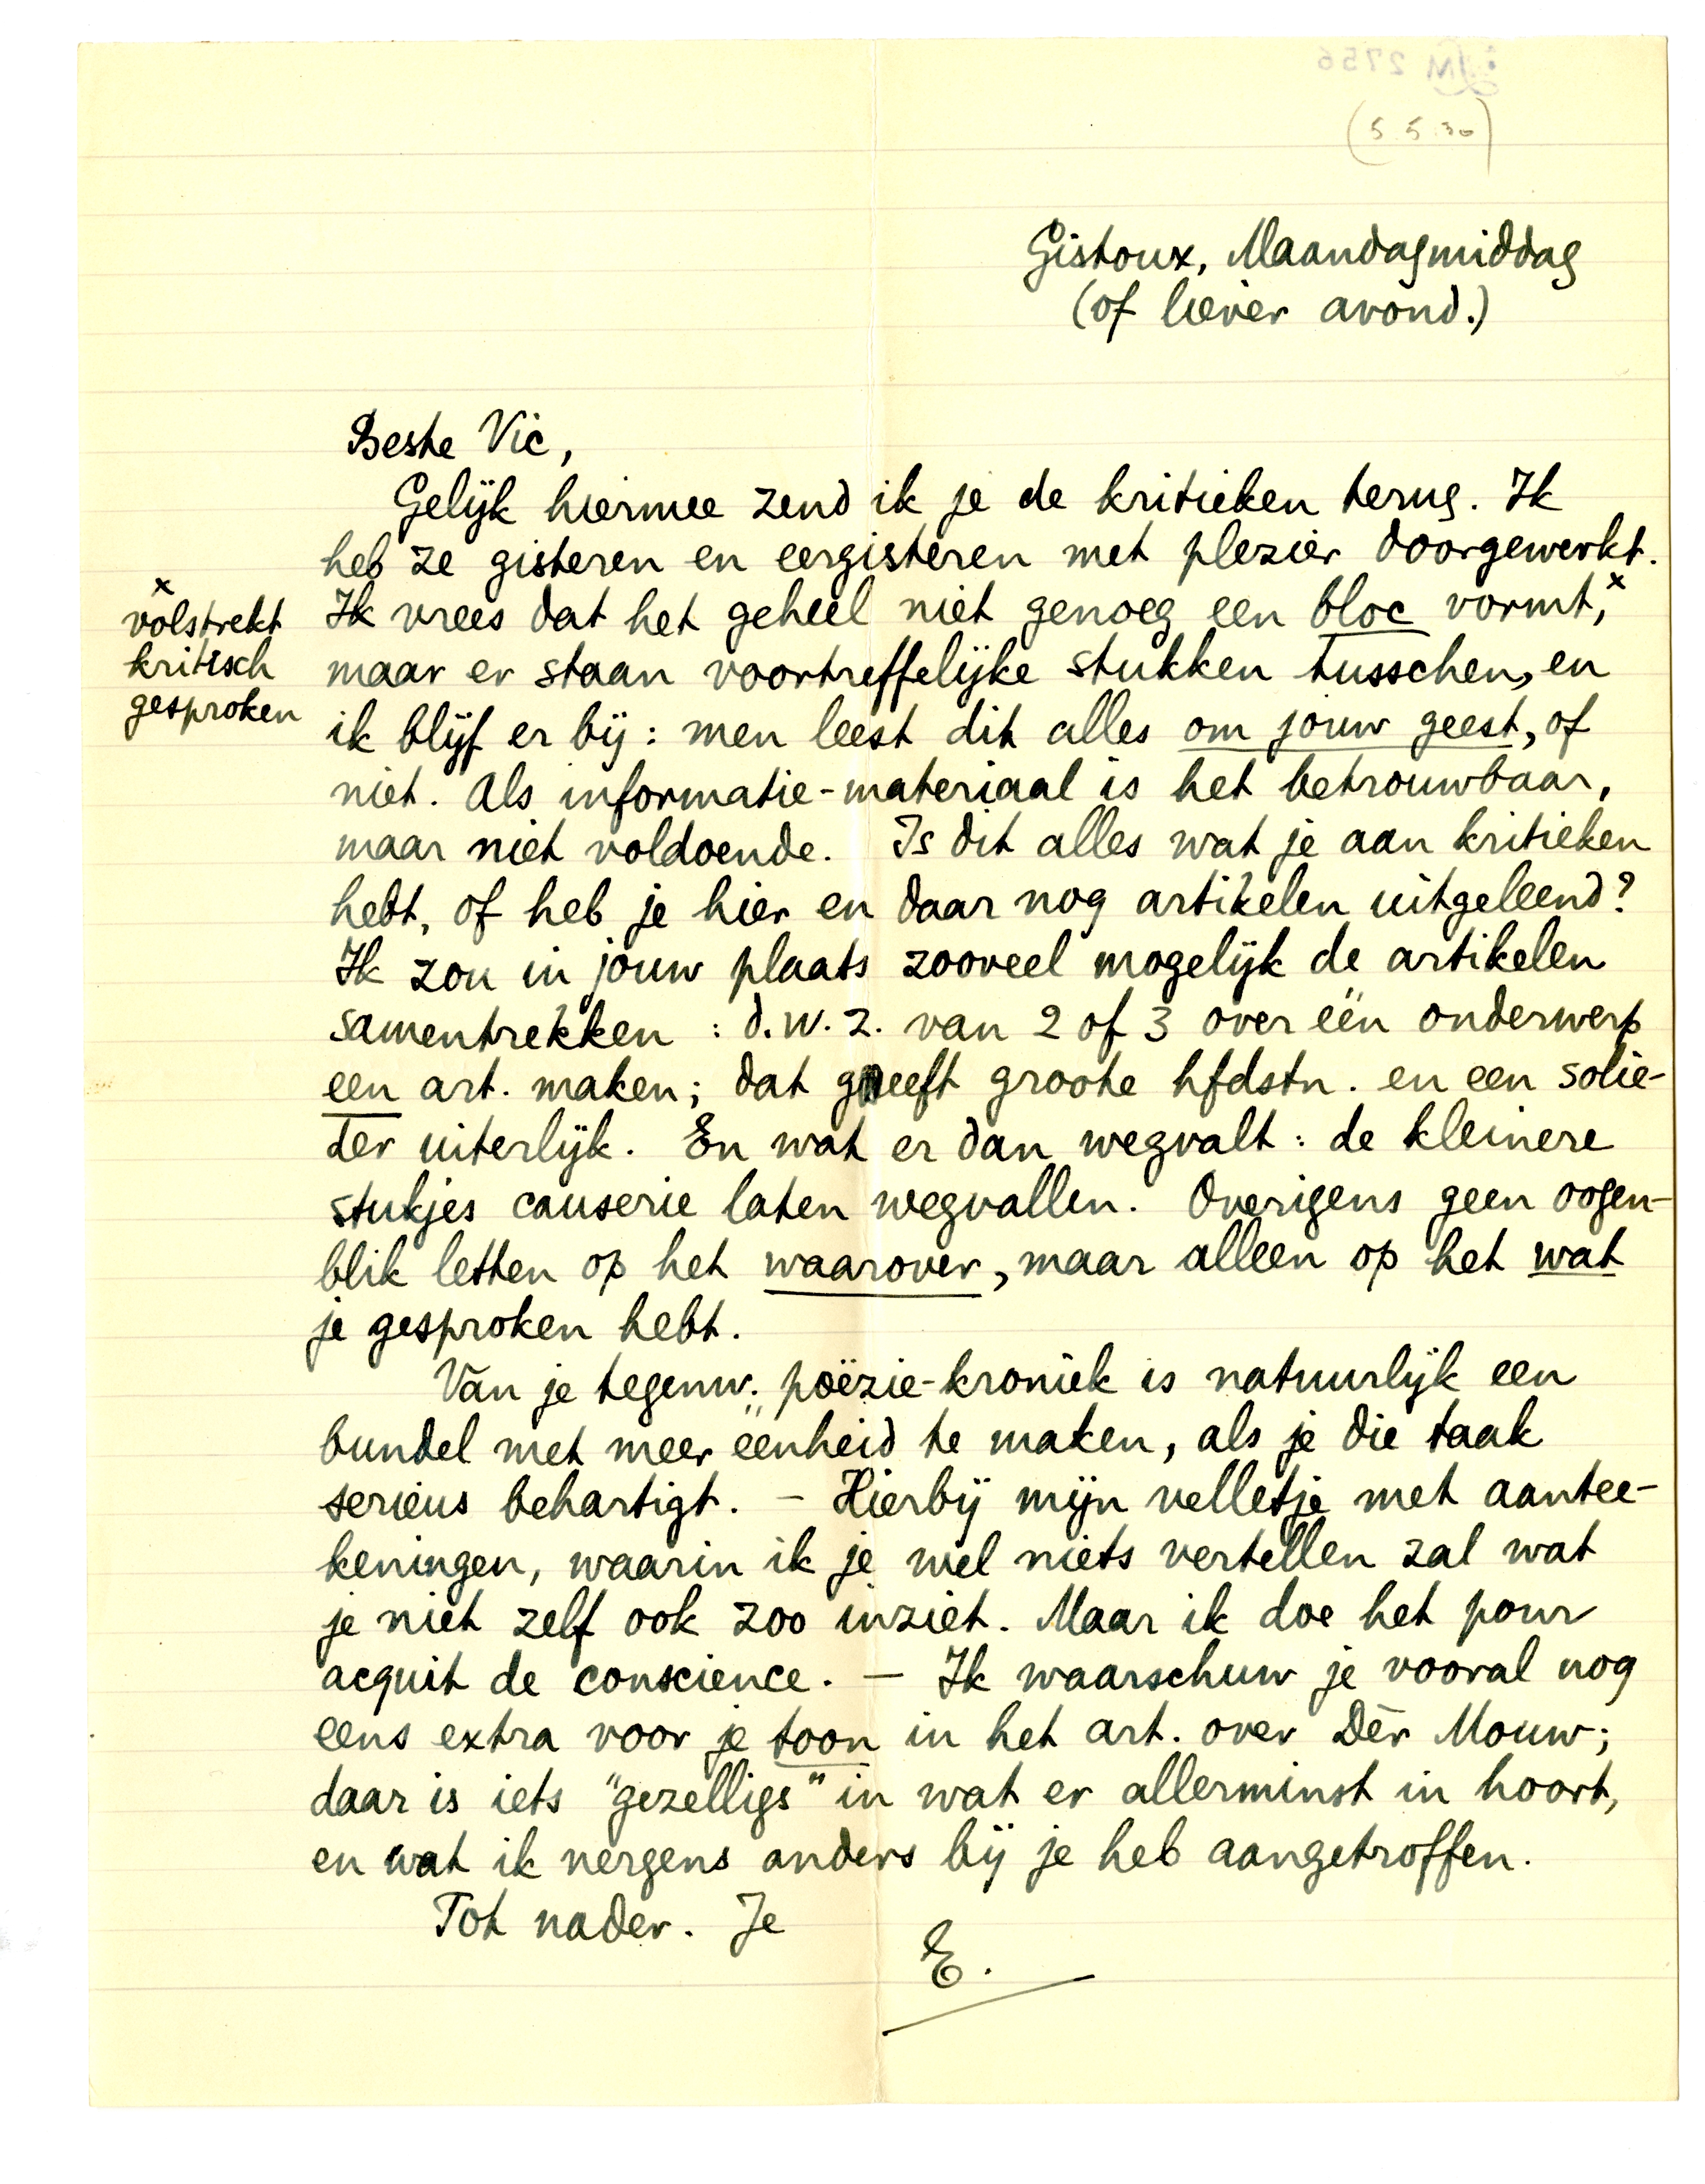 LM 2756
(5.5.30)
Gistoux, Maandagmiddag
(of liever avond.)
Beste Vic,
Gelijk hiermee zend ik je de kritieken terug. Ik
heb ze gisteren en eergisteren met plezier doorgewerkt.
Ik vrees dat het geheel niet genoeg een bloc vormt,x
x
volstrekt
kritisch
gesproken
maar er staan voortreffelijke stukken tusschen, en
ik blijf er bij: men leest dit alles om jouw geest, of
niet. Als informatie-materiaal is het betrouwbaar,
maar niet voldoende. Is dit alles wat je aan kritieken
hebt, of heb je hier en daar nog artikelen uitgeleend?
Ik zou in jouw plaats zooveel mogelijk de artikelen
samentrekken : d.w.z. van 2 of 3 over één onderwerp
een art. maken; dat geeft groote hfdstn. en een solie-
der uiterlijk. En wat er dan wegvalt: de kleinere
stukjes causerie laten wegvallen. Overigens geen oogen-
blik letten op het waarover, maar alleen op het wat
je gesproken hebt.
Van je tegenw. poëzie-kroniek is natuurlijk een
bundel met meer éénheid te maken, als je die taak
serieus behartigt. – Hierbij mijn velletje met aantee-
keningen, waarin ik je wel niets vertellen zal wat
je niet zelf ook zoo inziet. Maar ik doe het pour
acquit de conscience. – Ik waarschuw je vooral nog
eens extra voor je toon in het art. over Dèr Mouw;
daar is iets "gezelligs" in wat er allerminst in hoort,
en wat ik nergens anders bij je heb aangetroffen.
Tot nader. Je
E.